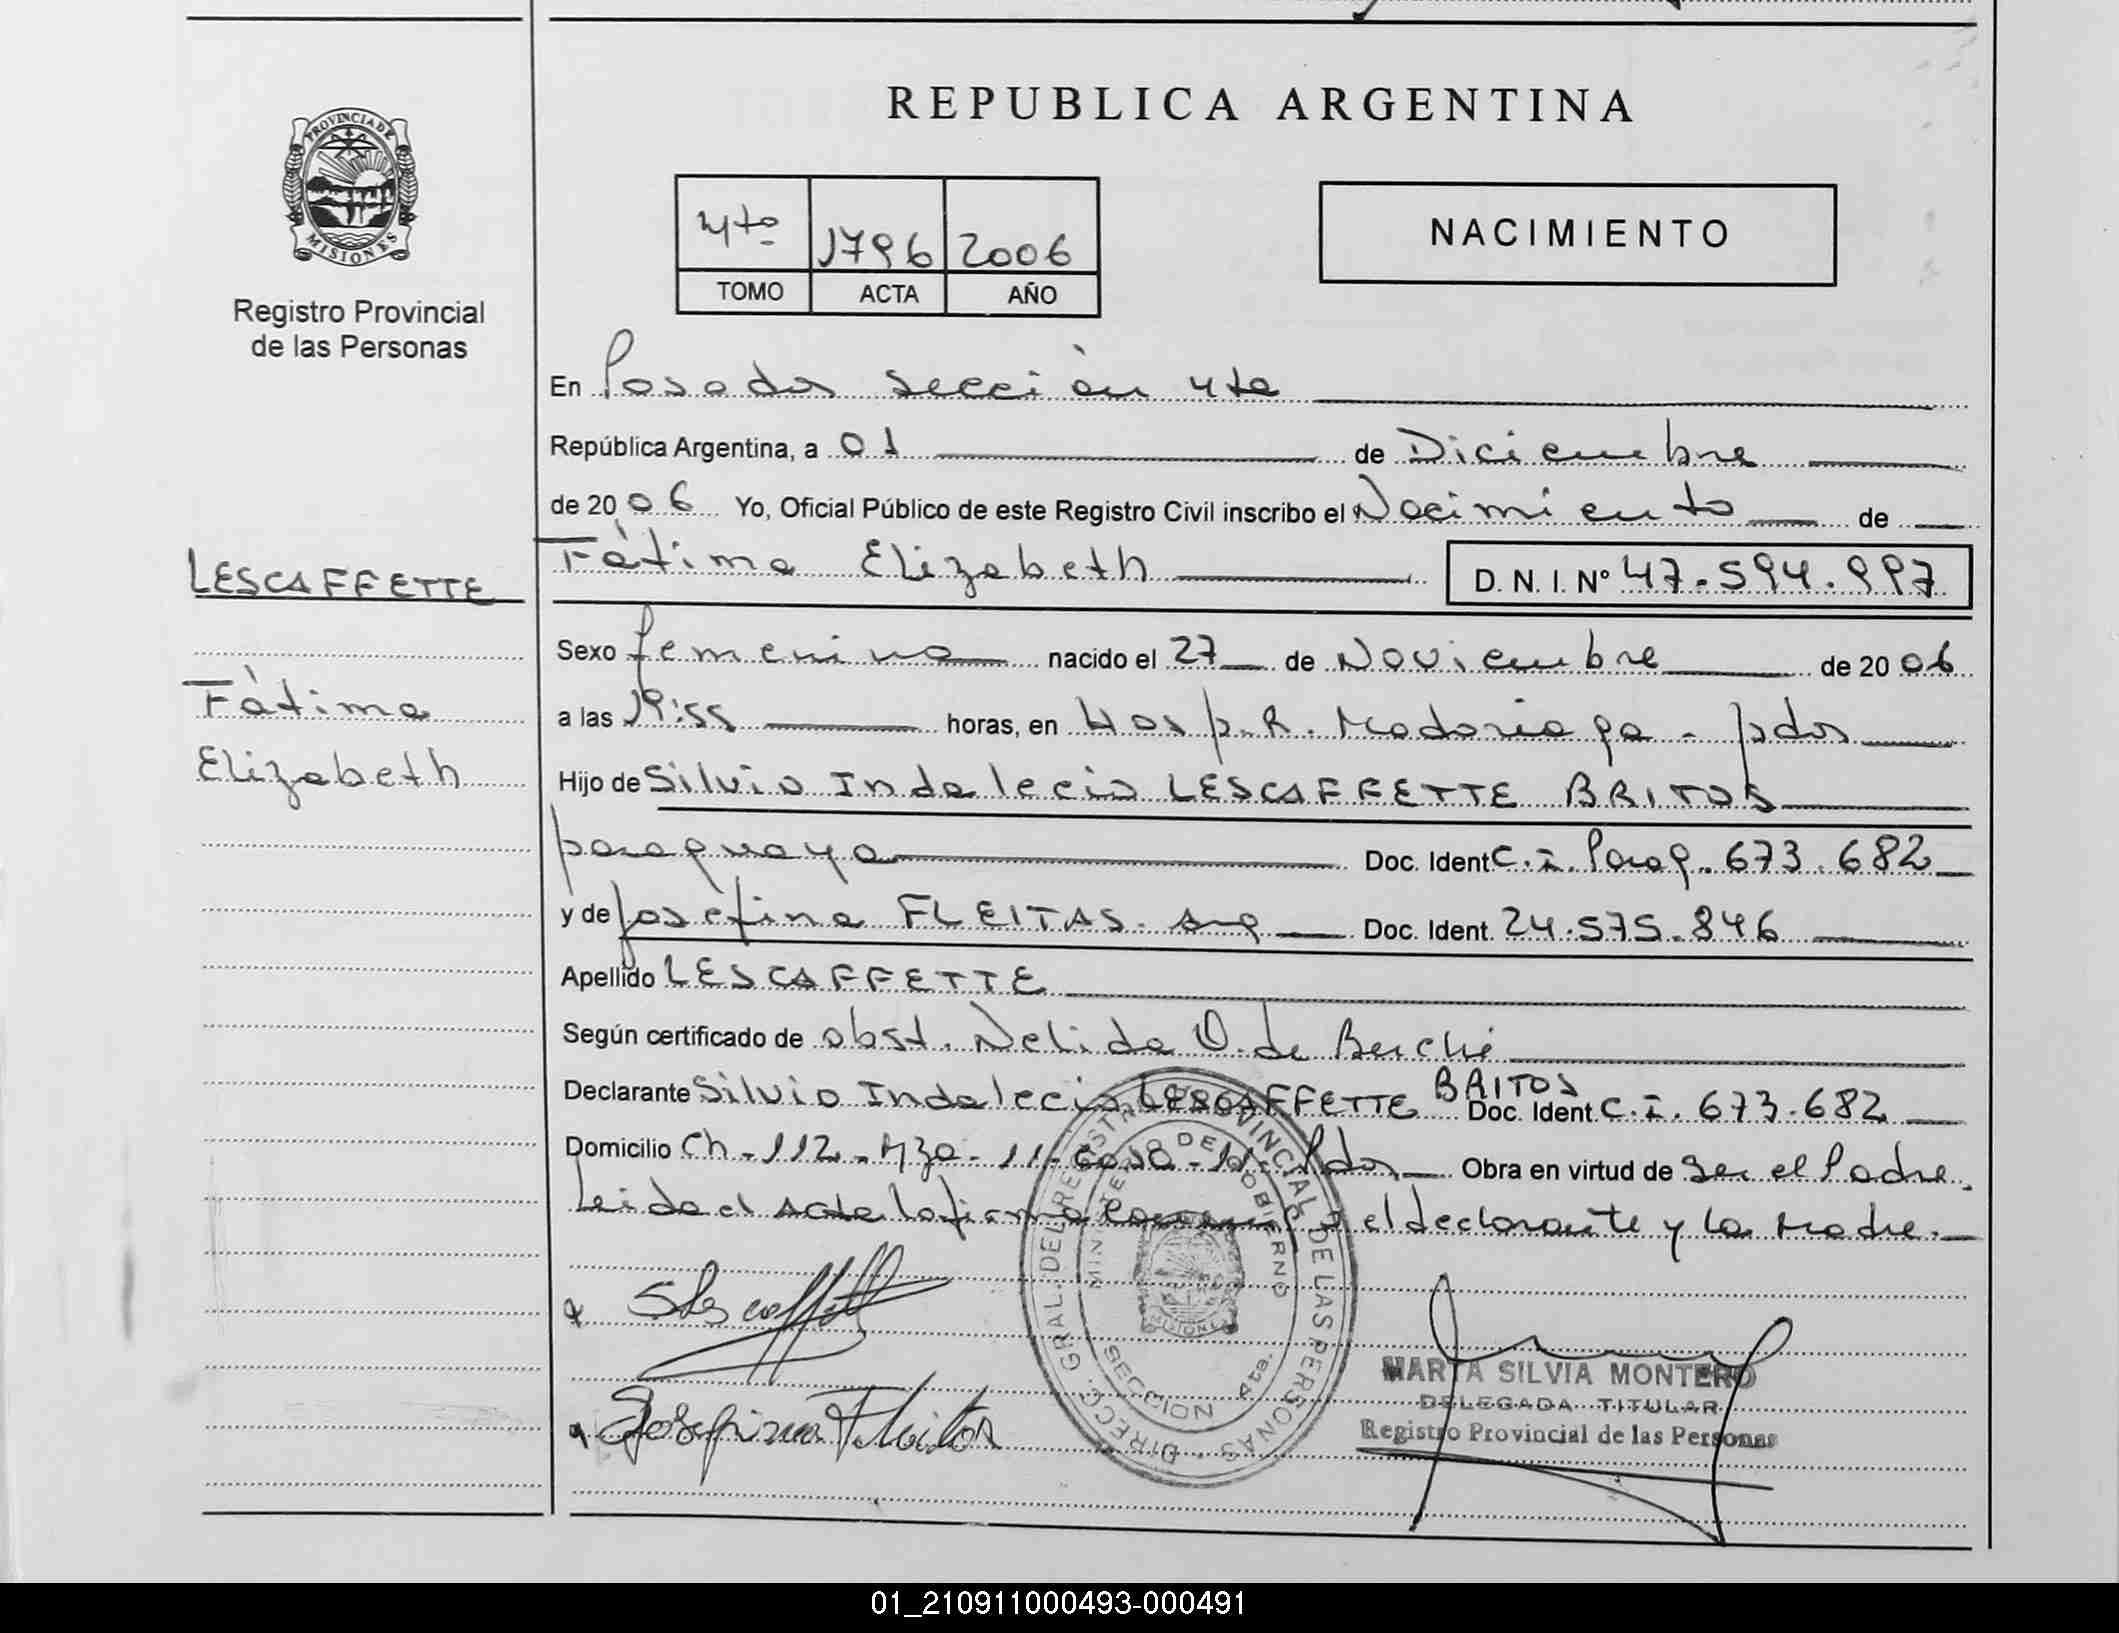 PROVINCIA DE
MISIONES
Registro Provincial
de las Personas
REPUBLICA ARGENTINA
4to 1796 2006
TOMO ACTA AÑO
NACIMIENTO
En Posadas sección 4ta
República Argentina, a 01 de Diciembre
de 2006 Yo, Oficial Público de este Registro Civil inscribo el Nacimiento de
LESCAFFETTE
Fátima Elizabeth D. N. I. Nº 47.594.997
Sexo femenino nacido el 27 de Noviembre de 2006
Fátima
a las 19:55 horas, en Hosp. R. Madariaga - pdas
Elizabeth
Hijo de Silvio Indalecio LESCAFFETTE BRITOS
paraguaya Doc. Ident C.I. Parag. 673.682
y de Josefina FLEITAS. arg Doc. Ident. 24.575.846
Apellido LESCAFFETTE
Según certificado de obst. Nelida O. de
Declarante Silvio Indalecio LESCAFFETTE BRITOS Doc. Ident C.I. 673.682
Domicilio Ch - 112 - Mza - 11 - casa - 11 - Pdas Obra en virtud de ser el Padre.
Leida el acta la firma conmigo el declarante y la Madre.
DIRECC. GRAL. DEL REGISTRO PROVINCIAL DE LAS PERSONAS
MINISTERIO DE GOBIERNO
MISIONES
SECCION 4ta.
SLescaffette
Josefina Fleitas
MARTA SILVIA MONTERO
DELEGADA TITULAR
Registro Provincial de las Personas
01_210911000493-000491